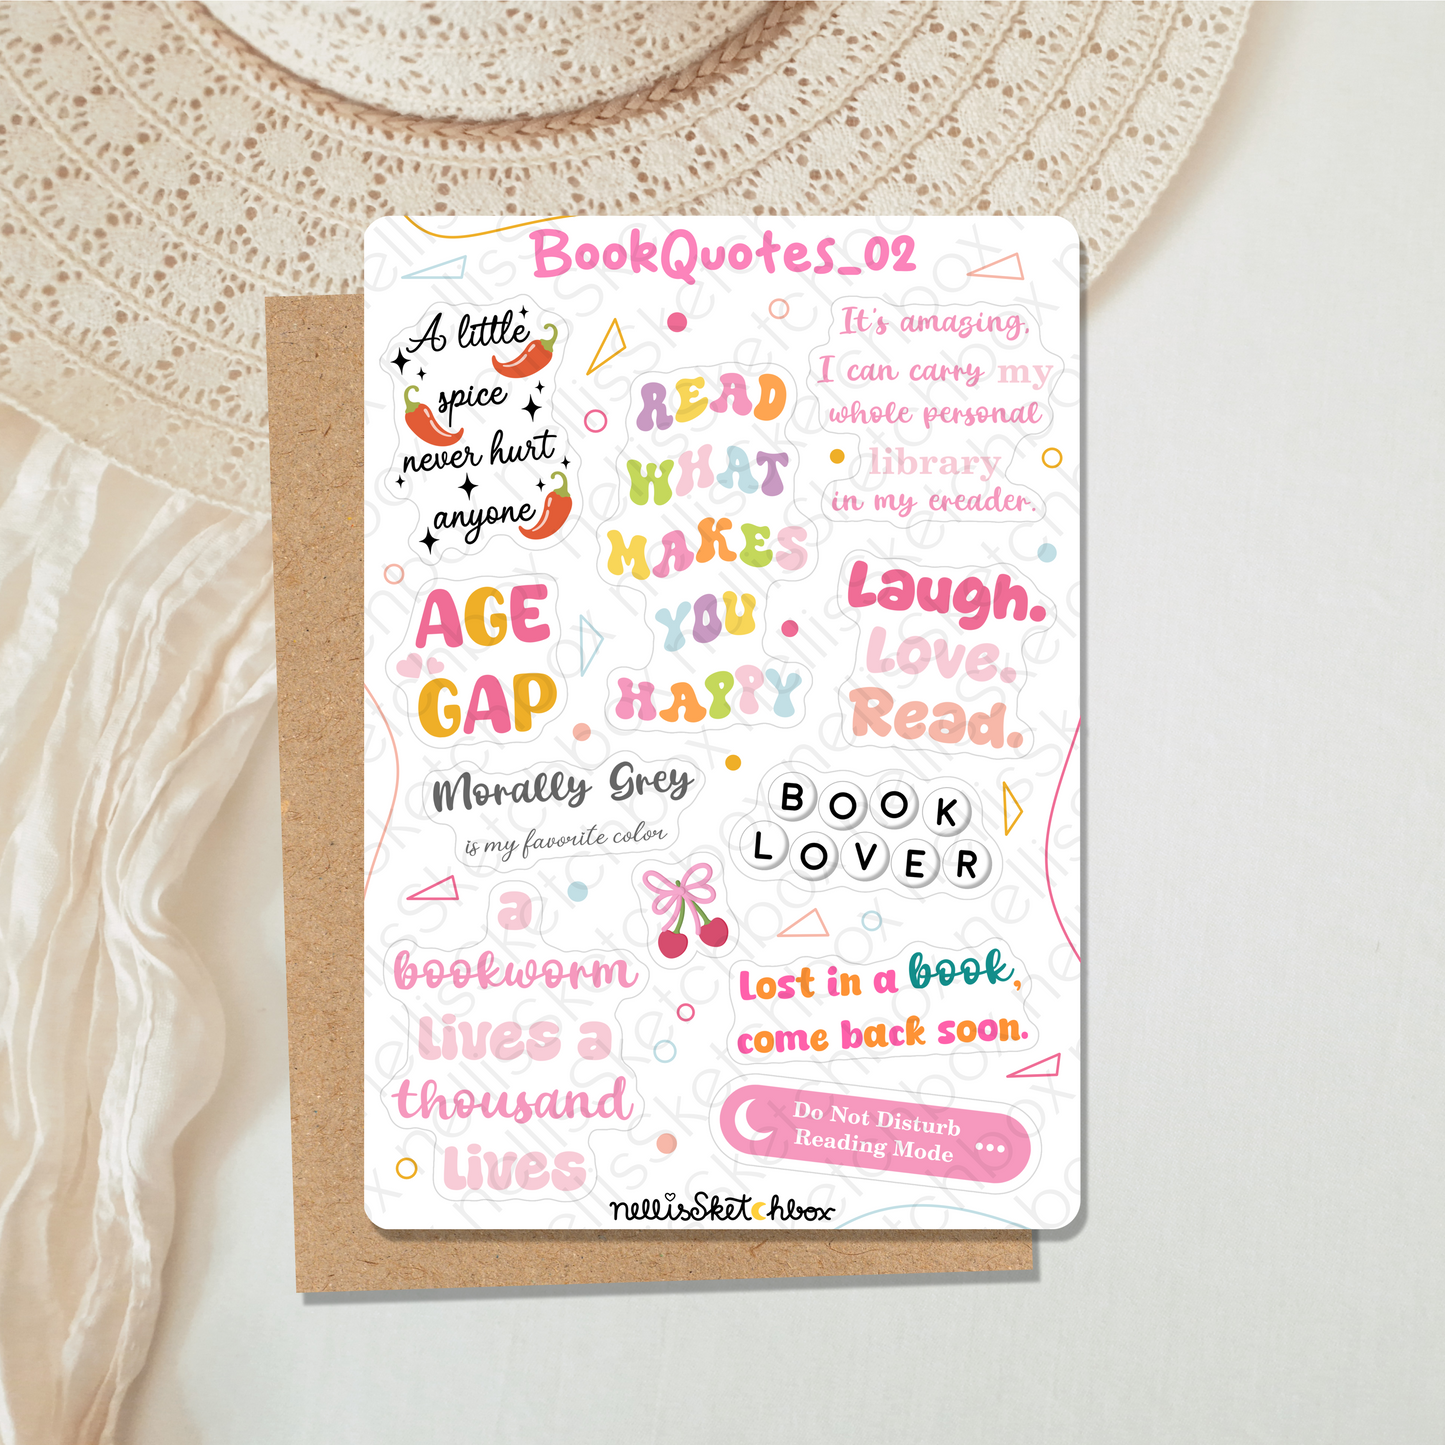 BookQuotes_02
A little
spice
never hurt
anyone
READ
WHAT
MAKES
YOU
HAPPY
It's amazing,
I can carry my
whole personal
library
in my ereader.
AGE
GAP
Laugh.
Love.
Read.
Morally Grey
is my favorite color
BOOK
LOVER
a
bookworm
lives a
thousand
lives
Lost in a book,
come back soon.
Do Not Disturb
Reading Mode
nellisSketchbox